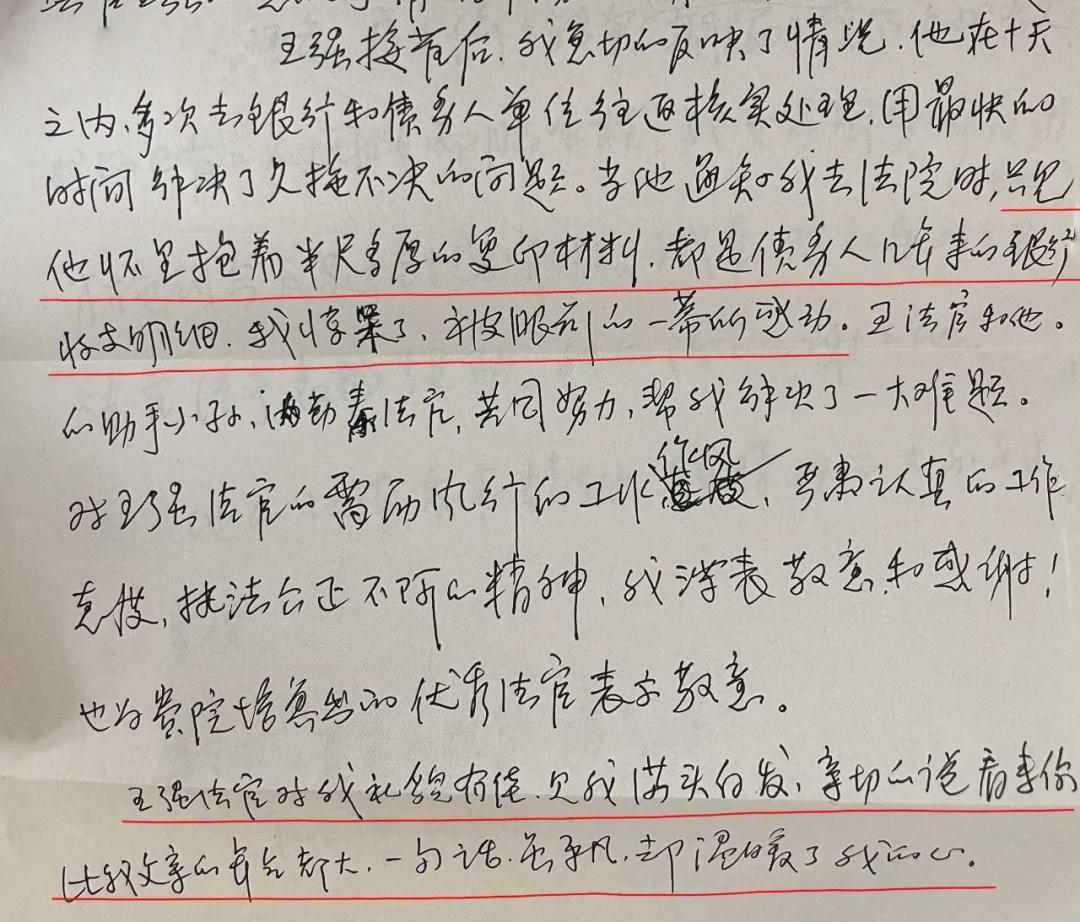 王强接首后,我急切的反映了情况.他在十天
之内,多次去银行和债务人单位往返核实处理,用最快的
时间解决了久拖不决的问题。当他通知我去法院时,只见
他怀里抱着半尺多厚的复印材料.都是债务人几年来的银行
收支明细.我惊呆了,被眼前的一幕所感动。王法官和他。
的助手小孙,法官,共同努力,帮我解决了一大难题。
对王强法官的雷励风行的工作作风,严肃认真的工作
态度,执法公正不阿的精神,我深表敬意和感谢!
也为贵院培养出的优秀法官表示敬意。
王强法官对我礼貌有佳.见我满头白发,亲切的说看来你
比我父亲的年令都大,一句话.虽平凡,却温暖了我的心。